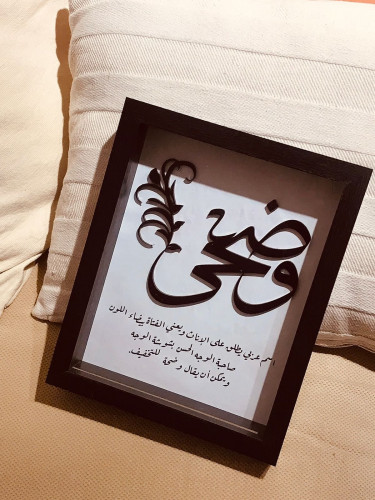 وضحى
اسم عربي يطلق على البنات ويعني الفتاة بيضاء اللون
صاحبة الوجه الحسن بشوشة الوجه
ويمكن أن يقال وضحة للتخفيف.